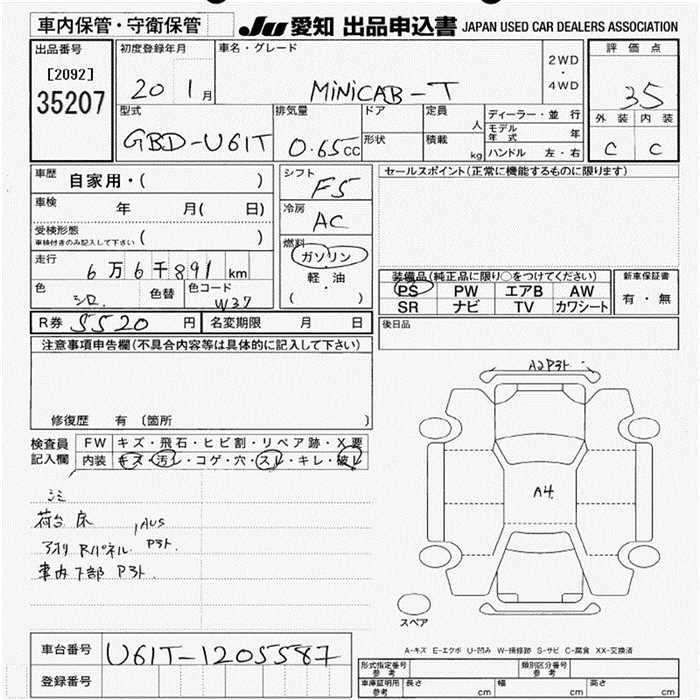 車内保管・守衛保管
JU 愛知 出品申込書 JAPAN USED CAR DEALERS ASSOCIATION
出品番号
[2092]
35207
初度登録年月
20 1月
車名・グレード
MiNiCAB-T
2WD
・
4WD
評価点
3.5
外装 内装
C C
型式
GBD-U61T
排気量
0.65cc
ドア
形状
定員
人
積載
kg
ディーラー・並行
モデル年式 年
ハンドル 左・右
車歴
自家用・( )
車検
年 月( 日)
受検形態
車検付きのみ記入して下さい ( )
走行
6万6千891 km
色
シロ
色替
色コード
W37
シフト
F5
冷房
AC
燃料
ガソリン
軽・油
( ・ )
セールスポイント(正常に機能するものに限ります)
装備品(純正品に限り○をつけてください)
PS PW エアB AW
SR ナビ TV カワシート
新車保証書
有・無
後日品
R券 5520 円
名変期限 月 日
注意事項申告欄(不具合内容等は具体的に記入して下さい)
修復歴 有 〔箇所 〕
検査員記入欄
FW キズ・飛石・ヒビ割・リペア跡・X要
内装 キズ・汚レ・コゲ・穴・スレ・キレ・破レ
シミ
荷台 床
アオリ Rパネル P3ト.
車内下部 P3ト
A2P3ト
A4.
スペア
A-キズ E-エクボ U-凹み W-補修跡 S-サビ C-腐食 XX-交換済
車台番号 U61T-1205587
登録番号
形式指定番号 参考
類別区分番号 参考
車庫証明用 参考
長さ cm
幅 cm
高さ cm